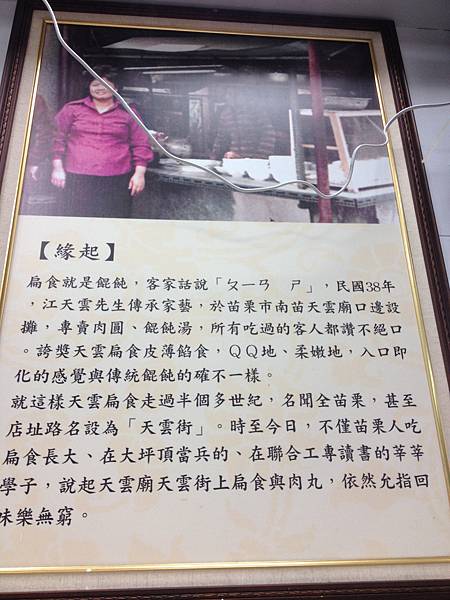 【緣起】
扁食就是餛飩,客家話說「ㄆㄧㄢ ㄕ」,民國38年
,江天雲先生傳承家藝,於苗栗市南苗天雲廟口邊設
攤,專賣肉圓、餛飩湯,所有吃過的客人都讚不絕口
。誇獎天雲扁食皮薄餡食,QQ地、柔嫩地,入口即
化的感覺與傳統餛飩的確不一樣。
就這樣天雲扁食走過半個多世紀,名聞全苗栗,甚至
店址路名設為「天雲街」。時至今日,不僅苗栗人吃
扁食長大、在大坪頂當兵的、在聯合工專讀書的莘莘
學子,說起天雲廟天雲街上扁食與肉丸,依然允指回
味樂無窮。